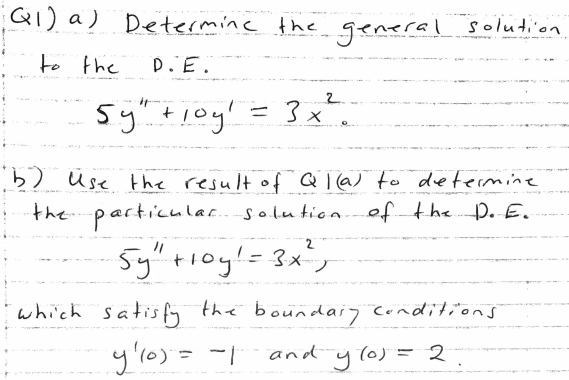 Q1) a) Determine the general solution
to the D.E.
5y" + 10y' = 3x².
b) Use the result of Q1(a) to determine
the particular solution of the D.E.
5y" + 10y' = 3x²,
which satisfy the boundary conditions
y'(0) = -1 and y(0) = 2.